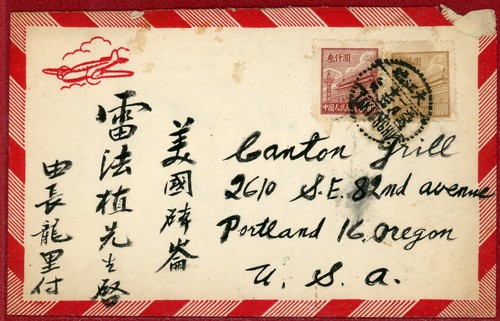 叁仟圓
中國人民
Canton Grill
2610 S.E. 82nd avenue
Portland 16, Oregon
U. S. A.
美國砵崙
雷法植先生啓
由長龍里付